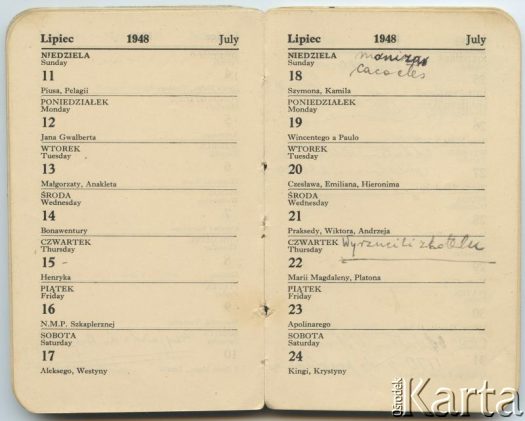 Lipiec 1948 July
NIEDZIELA
Sunday
11
Piusa, Pelagii
PONIEDZIAŁEK
Monday
12
Jana Gwalberta
WTOREK
Tuesday
13
Małgorzaty, Anakleta
ŚRODA
Wednesday
14
Bonawentury
CZWARTEK
Thursday
15 -
Henryka
PIĄTEK
Friday
16
N.M.P. Szkaplerznej
SOBOTA
Saturday
17
Aleksego, Westyny
Lipiec 1948 July
NIEDZIELA
Sunday
18
Szymona, Kamila
PONIEDZIAŁEK
Monday
19
Wincentego a Paulo
WTOREK
Tuesday
20
Czesława, Emiliana, Hieronima
ŚRODA
Wednesday
21
Praksedy, Wiktora, Andrzeja
CZWARTEK Wyrzucili z hotelu
Thursday
22
Marii Magdaleny, Platona
PIĄTEK
Friday
23
Apolinarego
SOBOTA
Saturday
24
Kingi, Krystyny
ośrodek Karta